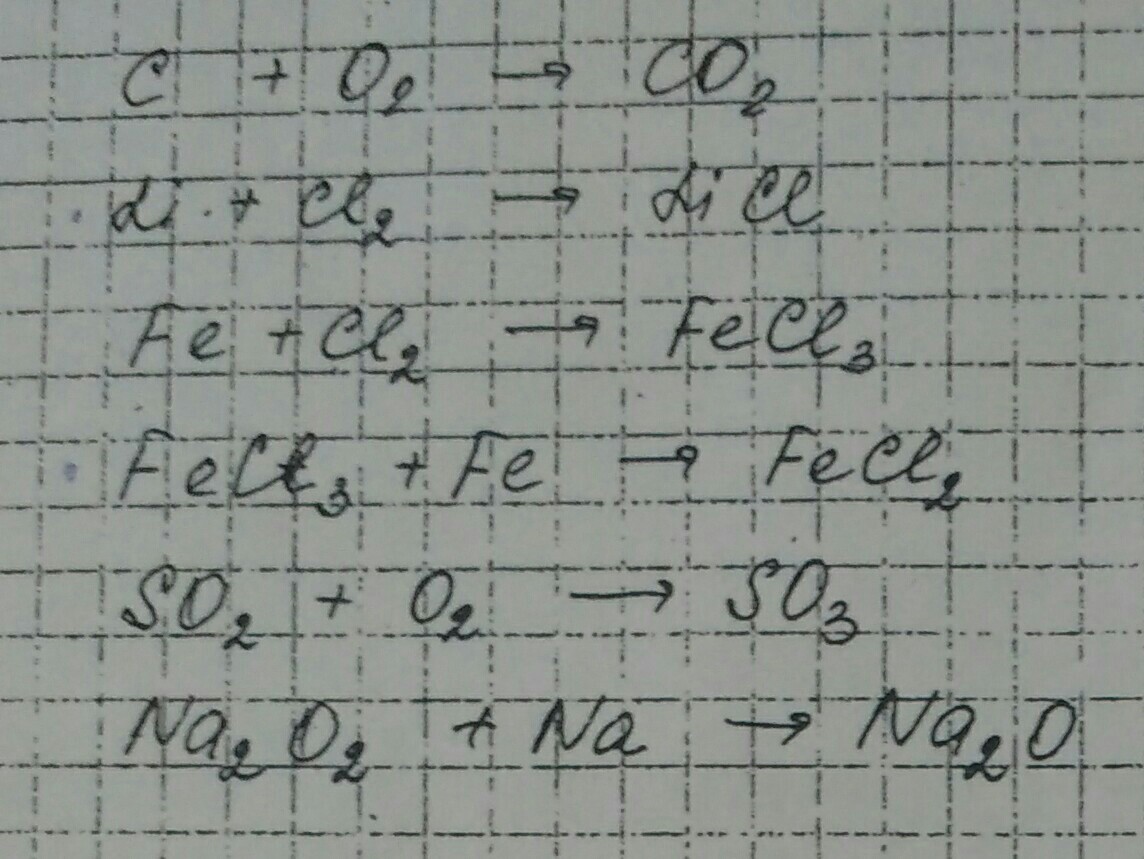 C + O₂ → CO₂
Li + Cl₂ → LiCl
Fe + Cl₂ → FeCl₃
FeCl₃ + Fe → FeCl₂
SO₂ + O₂ → SO₃
Na₂O₂ + Na → Na₂O